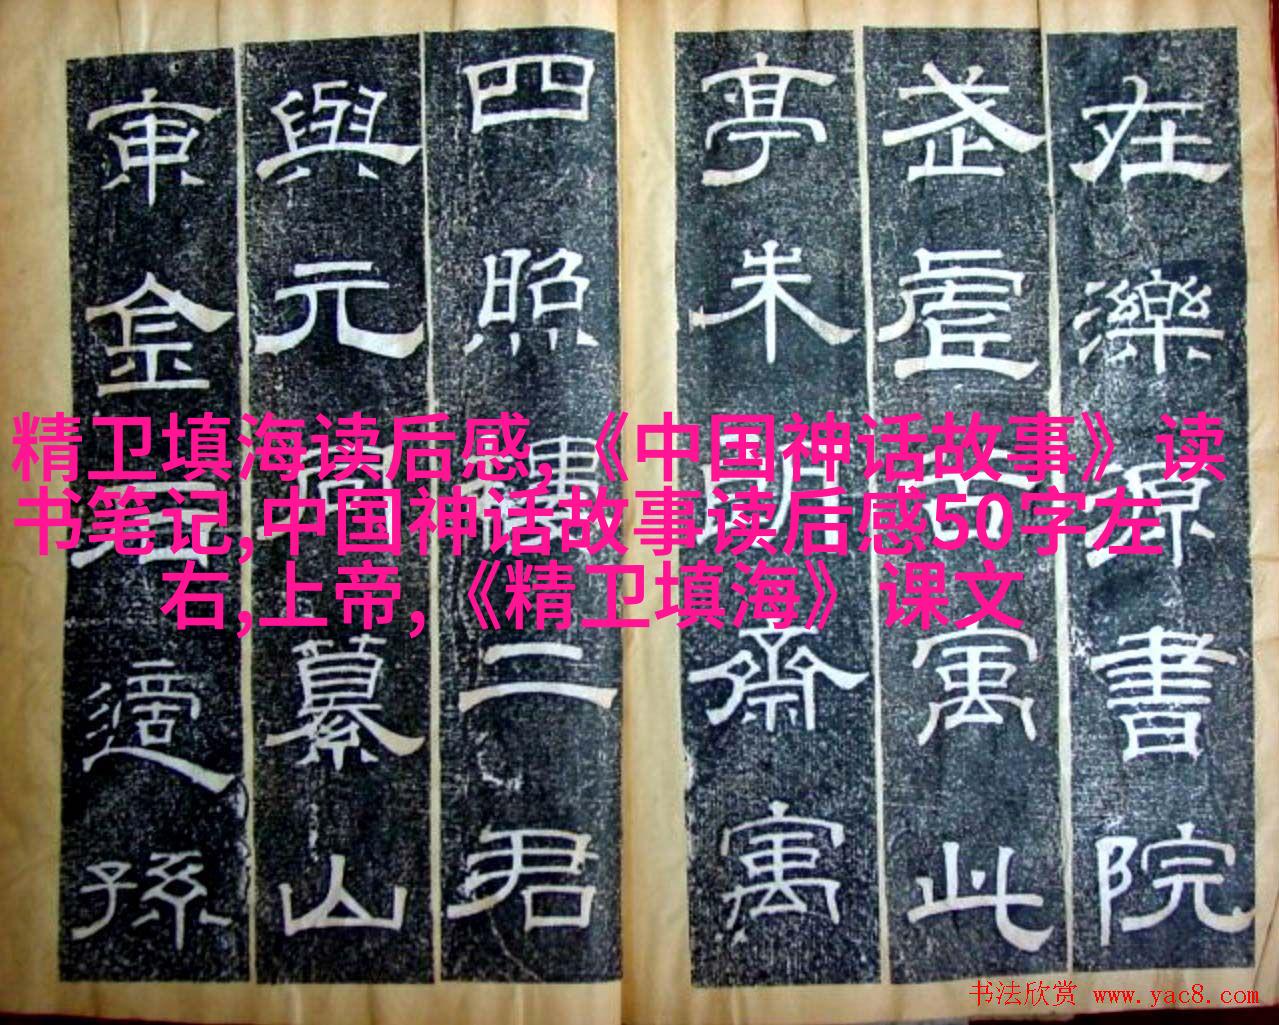 精卫填海读后感,《中国神话故事》读
书笔记,中国神话故事读后感50字左
右,上帝,《精卫填海》课文
在濼源書院
武虛寓此
亭朱朗齋寓
四照樓二君
與元同纂山
東金石適孫
书法欣赏 www.yac8.com